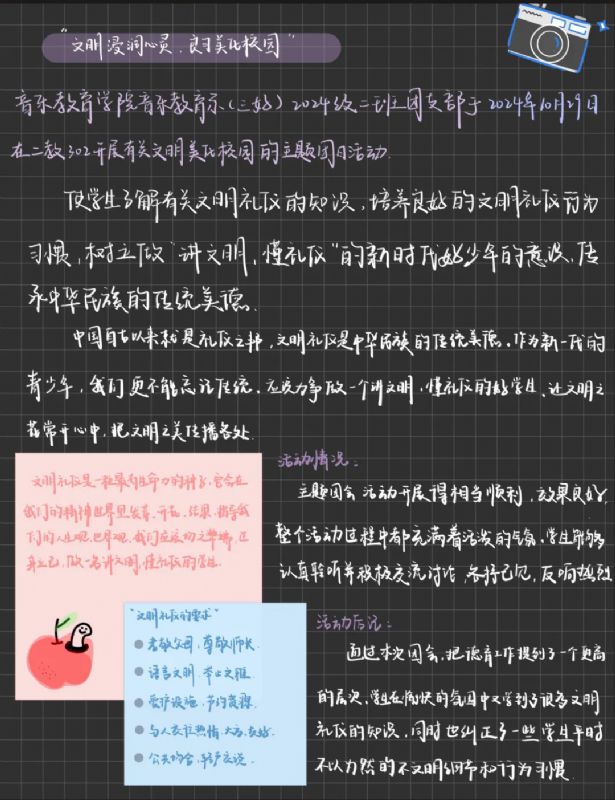 "文明浸润心灵,良习美化校园"
音乐教育学院音乐教育系(三好)2024级二班主团支部于2024年10月29日
在二教302开展有关文明美化校园的主题团日活动.
使学生了解有关文明礼仪的知识,培养良好的文明礼仪行为
习惯,树立做"讲文明,懂礼仪"的新时代好少年的意识,传
承中华民族的传统美德.
中国自古以来就是礼仪之邦,文明礼仪是中华民族的传统美德.作为新一代的
青少年,我们更不能忘记传统.应该力争做一个讲文明,懂礼仪的好学生.让文明之
花常开心中,把文明之美传播各处.
文明礼仪是一粒最有生命力的种子,它会在
我们的精神世界里发芽、开花、结果,指导我
们的人生观、世界观,我们应该时刻
身立己,做一名讲文明,懂礼仪的学生.
"文明礼仪的要求"
孝敬父母,尊敬师长
语言文明,举止文雅
爱护设施,节约资源
与人交往热情、大方、友好
公共场合,轻声交谈
活动情况:
主题团会活动开展得相当顺利,效果良好
整个活动过程中都充满着活泼的气氛,学生能够
认真聆听并积极交流讨论,各抒己见,反响热烈
活动后记:
通过本次团会,把德育工作提到了一个更高
的层次,学生在愉快的氛围中又学到了很多文明
礼仪的知识,同时也纠正了一些学生平时
不以为然的不文明细节和行为习惯